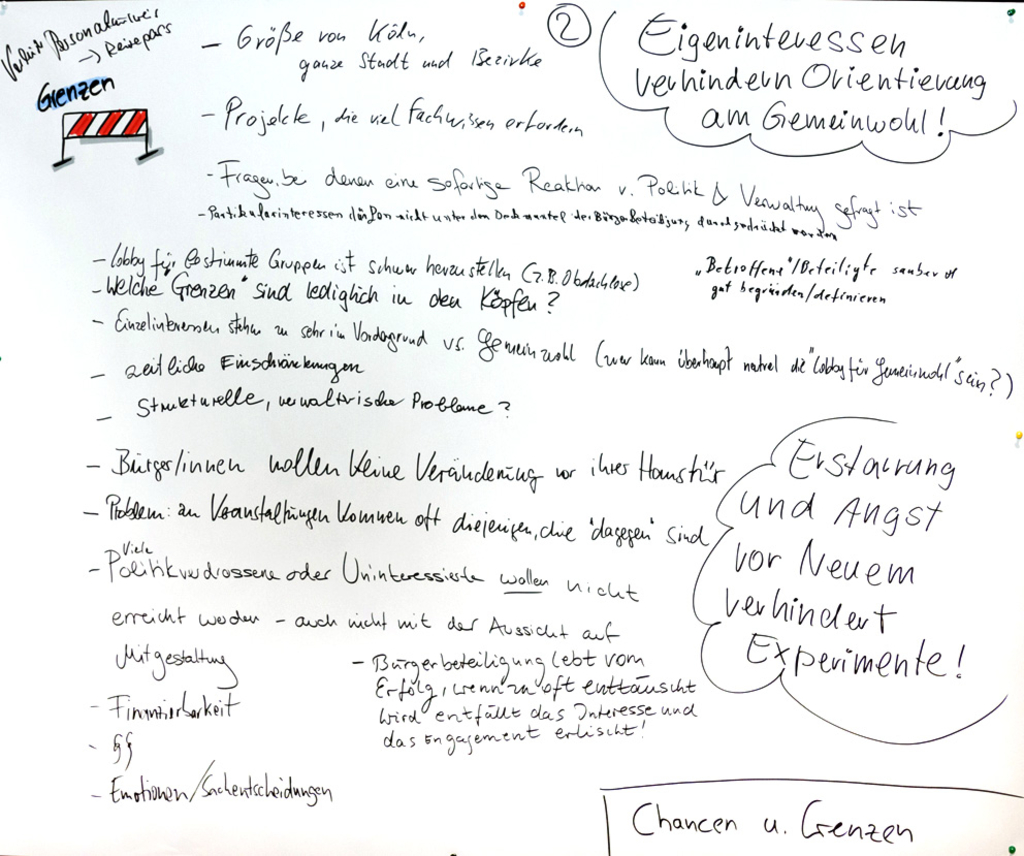 → Reisepass
Grenzen
- Größe von Köln,
ganze Stadt und Bezirke
- Projekte, die viel Fachwissen erfordern
- Fragen, bei denen eine sofortige Reaktion v. Politik & Verwaltung gefragt ist
- Partikularinteressen dürfen nicht unter dem Deckmantel der Bürgerbeteiligung durchgedrückt werden
②
Eigeninteressen
verhindern Orientierung
am Gemeinwohl!
- Lobby für bestimmte Gruppen ist schwer herzustellen (z.B. Obdachlose)
"Betroffene"/Beteiligte sauber &
gut begründen/definieren
- Welche "Grenzen" sind lediglich in den Köpfen?
- Einzelinteressen stehen zu sehr im Vordergrund vs. Gemeinwohl (wer kann überhaupt neutral die "Lobby für Gemeinwohl" sein?)
- zeitliche Einschränkungen
- Strukturelle, verwalterische Probleme?
- Bürger/innen wollen keine Veränderung vor ihrer Haustür
- Problem: zu Veranstaltungen kommen oft diejenigen, die "dagegen" sind
Viele
- Politikverdrossene oder Uninteressierte wollen nicht
erreicht werden – auch nicht mit der Aussicht auf
Mitgestaltung
- Finanzierbarkeit
- §§
- Emotionen/Sachentscheidungen
- Bürgerbeteiligung lebt vom
Erfolg, wenn zu oft enttäuscht
wird entfällt das Interesse und
das Engagement erlischt!
Erstarrung
und Angst
vor Neuem
verhindert
Experimente!
Chancen u. Grenzen